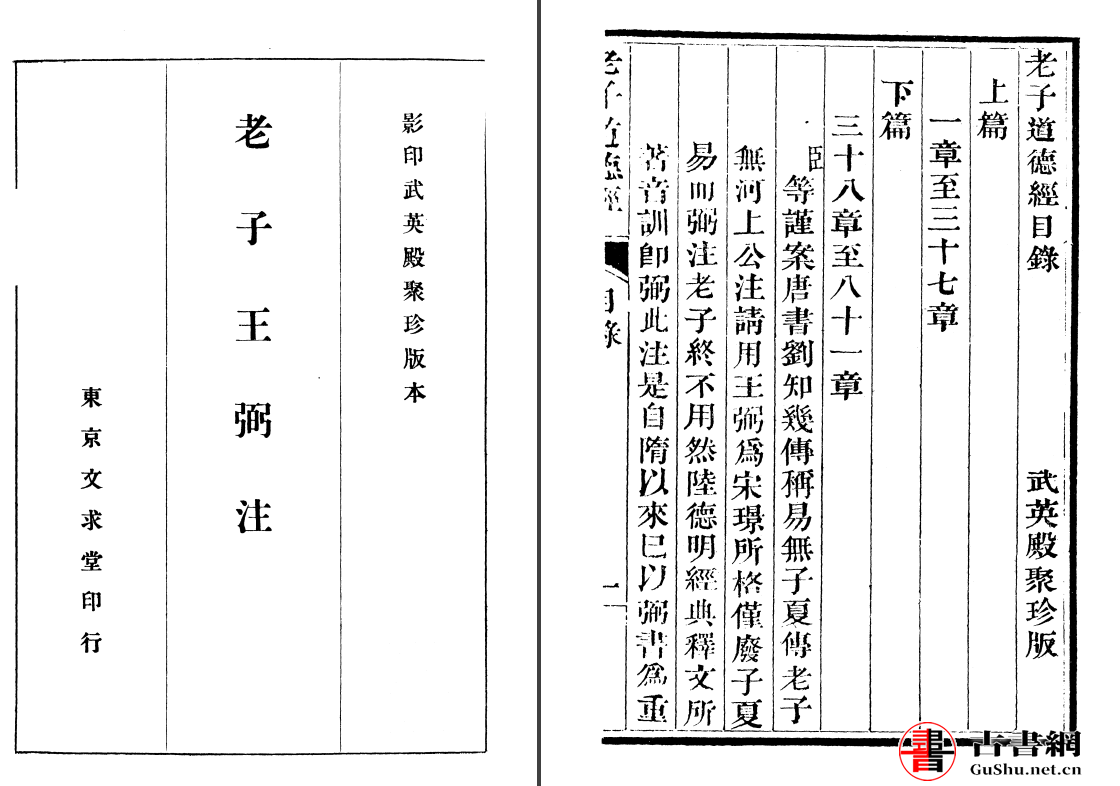 影印武英殿聚珍版本
老子王弼注
東京文求堂印行
老子道德經目錄 武英殿聚珍版
上篇
一章至三十七章
下篇
三十八章至八十一章
臣等謹案唐書劉知幾傳稱易無子夏傳老子
無河上公注請用王弼爲宋璟所格僅廢子夏
易而弼注老子終不用然陸德明經典釋文所
著音訓卽弼此注是自隋以來已以弼書爲重
老子道德經 目錄 一
書 古書網
GuShu.net.cn